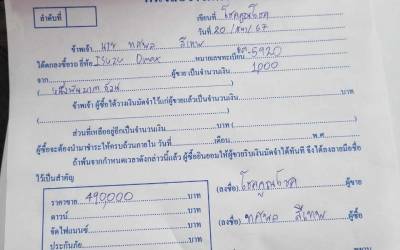 ลำดับที่
เขียนที่ โชคคูณโชค
วันที่ 20 / 67
ข้าพเจ้า นาย ทศพล สีเทพ
ได้ตกลงซื้อรถ ยี่ห้อ ISUZU Dmax หมายเลขทะเบียน -5920
จาก ผู้ขาย เป็นจำนวนเงิน 1,000
(หนึ่งพันบาทถ้วน)
ข้าพเจ้า ผู้ซื้อได้วางเงินมัดจำไว้แก่ผู้ขายแล้วเป็นจำนวนเงิน บาท
ส่วนที่เหลืออยู่อีกเป็นจำนวนเงิน บาท
ผู้ซื้อจะต้องนำมาชำระให้ครบถ้วนภายใน วันที่ เดือน พ.ศ.
ถ้าพ้นจากกำหนดเวลาดังกล่าวนี้แล้ว ผู้ซื้อยินยอมให้ผู้ขายริบเงินมัดจำได้ทันที จึงได้ลงลายมือชื่อ
ไว้เป็นสำคัญ
ราคาขาย 490,000 บาท
(ลงชื่อ) โชคคูณโชค ผู้ขาย
ดาวน์ บาท
จัดไฟแนนซ์ บาท
(ลงชื่อ) ทศพล สีเทพ ผู้ซื้อ
ประกันภัย บาท